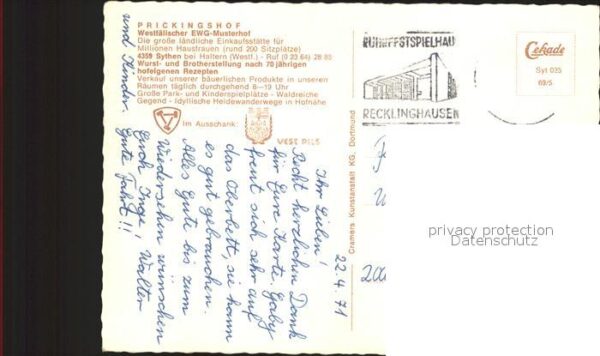 PRICKINGSHOF
Westfälischer EWG-Musterhof
Die große ländliche Einkaufsstätte für
Millionen Hausfrauen (rund 200 Sitzplätze)
4359 Sythen bei Haltern (Westf.) - Ruf (0 23 64) 28 83
Wurst- und Brotherstellung nach 70 jährigen
hofeigenen Rezepten
Verkauf unserer bäuerlichen Produkte in unseren
Räumen täglich durchgehend 8-19 Uhr
Große Park- und Kinderspielplätze - Waldreiche
Gegend - Idyllische Heidewanderwege in Hofnähe
Im Ausschank:
VEST PILS
RUHRFESTSPIELHAU
RECKLINGHAUSEN
Cekade
Syt 035
69/5
Cramers Kunstanstalt KG, Dortmund
22.4.71
Ihr Lieben!
Recht herzlichen Dank
für Eure Karte. Gaby
freut sich sehr auf
das Oberbett, sie kann
es gut gebrauchen.
Alles Gute bis zum
Wiedersehen wünschen
Euch Inge, Walter
und Kinder.
Gute Fahrt!!!
privacy protection
Datenschutz